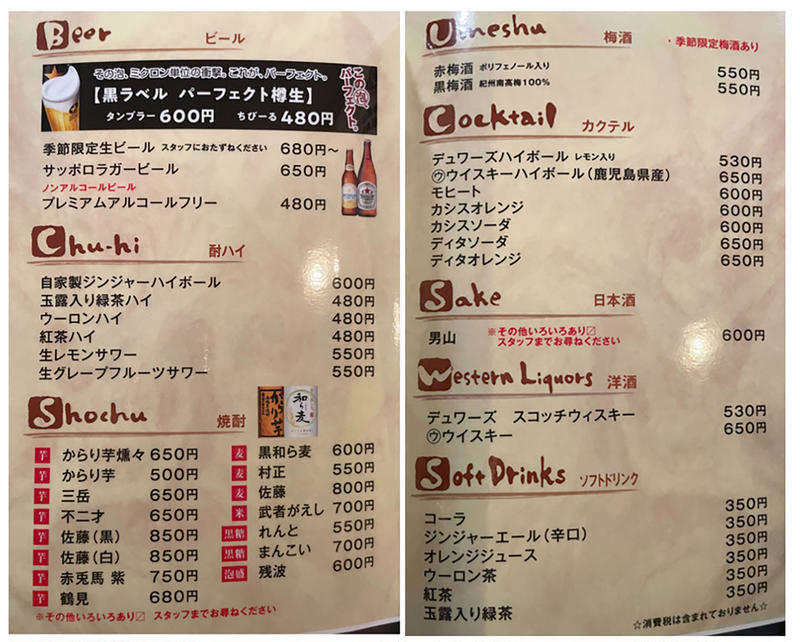 Beer ビール
その泡、ミクロン単位の衝撃。これが、パーフェクト。
【黒ラベル パーフェクト樽生】
タンブラー 600円 ちびーる 480円
この泡、パーフェクト。
季節限定生ビール スタッフにおたずねください 680円～
サッポロラガービール 650円
ノンアルコールビール
プレミアムアルコールフリー 480円
Chu-hi 酎ハイ
自家製ジンジャーハイボール 600円
玉露入り緑茶ハイ 480円
ウーロンハイ 480円
紅茶ハイ 480円
生レモンサワー 550円
生グレープフルーツサワー 550円
Shochu 焼酎
からり芋
和ら麦
芋 からり芋燻々 650円
芋 からり芋 500円
芋 三岳 650円
芋 不二才 650円
芋 佐藤（黒） 850円
芋 佐藤（白） 850円
芋 赤兎馬 紫 750円
芋 鶴見 680円
麦 黒和ら麦 600円
麦 村正 550円
麦 佐藤 800円
米 武者がえし 700円
黒糖 れんと 550円
黒糖 まんこい 700円
泡盛 残波 600円
※その他いろいろあり〼 スタッフまでお尋ねください
Umeshu 梅酒 ・季節限定梅酒あり
赤梅酒 ポリフェノール入り 550円
黒梅酒 紀州南高梅100% 550円
Cocktail カクテル
デュワーズハイボール レモン入り 530円
㋒ウイスキーハイボール（鹿児島県産） 650円
モヒート 600円
カシスオレンジ 600円
カシスソーダ 600円
ディタソーダ 650円
ディタオレンジ 650円
Sake 日本酒
男山 ※その他いろいろあり〼 600円
スタッフまでお尋ねください
Western Liquors 洋酒
デュワーズ スコッチウィスキー 530円
㋒ウイスキー 650円
Soft Drinks ソフトドリンク
コーラ 350円
ジンジャーエール（辛口） 350円
オレンジジュース 350円
ウーロン茶 350円
紅茶 350円
玉露入り緑茶 350円
☆消費税は含まれておりません☆